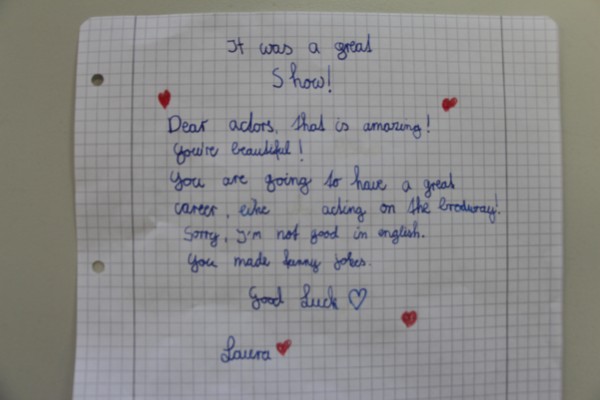 It was a great
Show!
Dear actors, that is amazing!
You're beautiful!
You are going to have a great
career, like acting on the brodway!
Sorry, I'm not good in english.
You made funny jokes.
Good Luck ♡
Laura